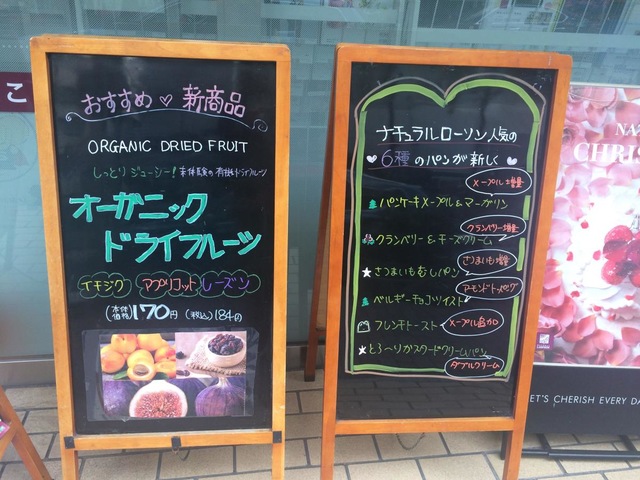 こ
おすすめ♡新商品
ORGANIC DRIED FRUIT
しっとりジューシー!
オーガニック
ドライフルーツ
イチジク アプリコット レーズン
(本体価格)170円 (税込)184円
ナチュラルローソン人気の
♥6種のパンが新しく♥
メープル増量
パンケーキメープル&マーガリン
クランベリー増量
クランベリー&チーズクリーム
さつまいも増量
★さつまいもむしパン
アーモンドトッピング
ベルギーチョコツイスト
フレンチトースト メープル追加
★とろ〜りカスタードクリームパン
ダブルクリーム
NA
CHRIS
LET'S CHERISH EVERY DA